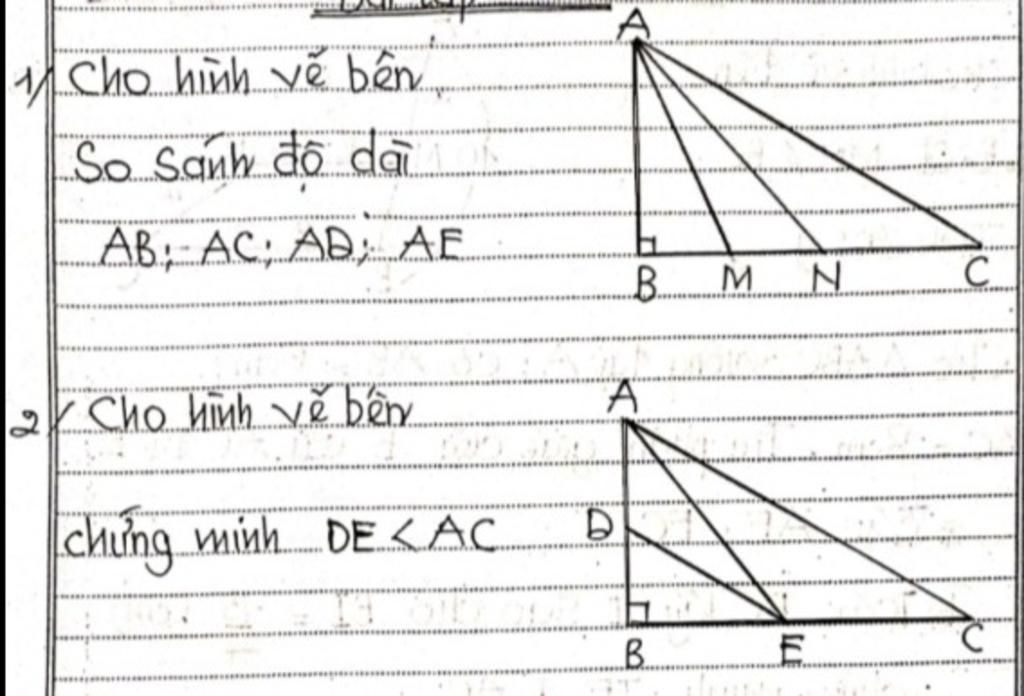 Bài tập
1/ Cho hình vẽ bên
So sánh độ dài
AB; AC; AD; AE
A
B M N C
2/ Cho hình vẽ bên
chứng minh DE < AC
A
D
B E C